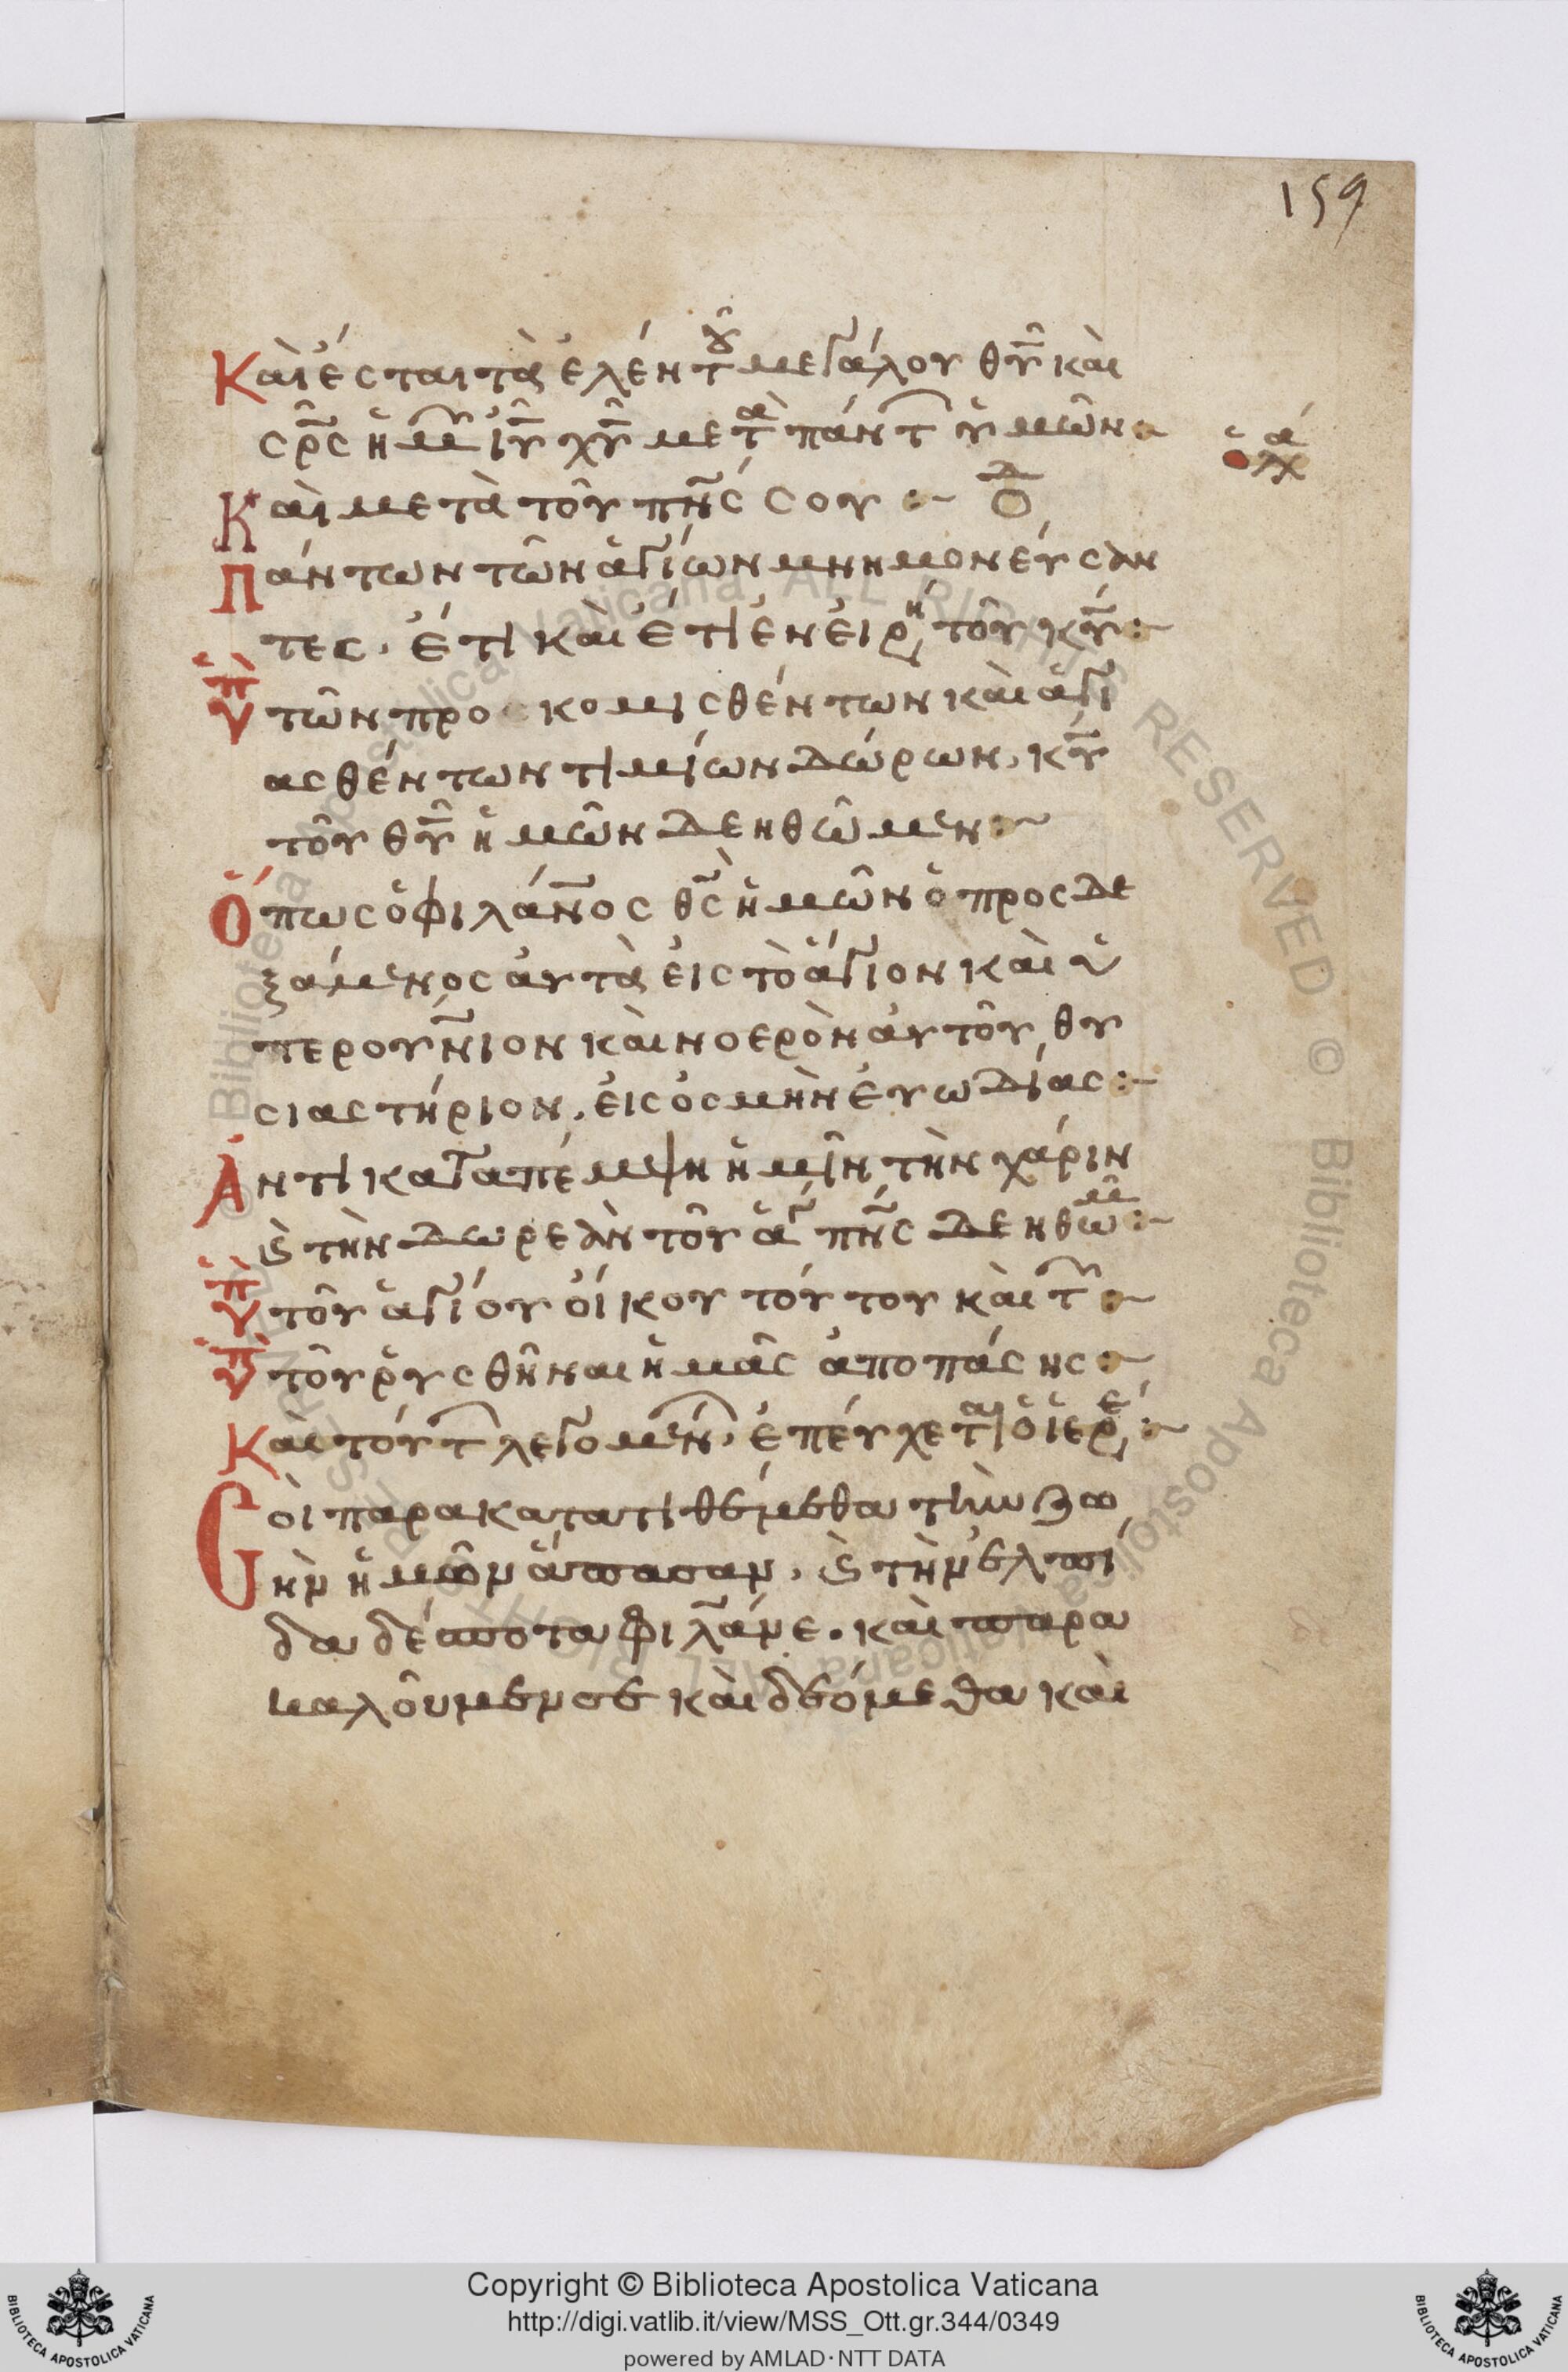 159
Καὶ ἔσται τὰ ἐλέη τοῦ μεγάλου θῦ καὶ
σρ̅ς ἡμ ιυ̅ χυ̅ μετὰ πάντ ὑμῶν :~
Καὶ μετὰ τοῦ πνς σου :~ ὁ Δ
Πάντων τῶν ἁγίων μνημονεύσαν
τες. ἔτι καὶ ἔτι ἐν εἰρή τοῦ κυ̅ :~
Ὑπ τῶν προσκομισθέντων καὶ ἁγι
ασθέντων τιμίων δώρων, κυ̅
τοῦ θυ̅ ἡμῶν δεηθῶμεν :~
Ὅπως ὁ φιλάνος θς̅ ἡμῶν ὁ προσδε
ξάμενος αὐτὰ εἰς τὸ ἅγιον καὶ ὑ
περουνιον καὶ νοερὸν αὐτοῦ θυ
σιαστήριον, εἰς ὀσμὴν εὐωδίας :~
Ἀντικαταπέμψη ἡμῖν τὴν χάριν
ϗ τὴν δωρεὰν τοῦ ἁγ πνς δεηθῶμ :~
Ὑπ τοῦ ἁγίου οἴκου τούτου καὶ τ :~
Ὑπ τοῦ ῥυσθῆναι ἡμᾶς ἀπο πάσης :~
Καὶ τούτ λεγομέν, ἐπεύχεται ὁ ἱερέ :~
Σοὶ παρακατατιθέμεθα τὴν ζω
ὴν ἡμῶν ἅπασαν, ϗ τὴν ἐλπί
δα δέσποτα φιλάνε. καὶ παρα
καλοῦμεν σε καὶ δεόμεθα καὶ
Copyright © Biblioteca Apostolica Vaticana
http://digi.vatlib.it/view/MSS_Ott.gr.344/0349
powered by AMLAD·NTT DATA
BIBLIOTECA APOSTOLICA VATICANA
BIBLIOTECA APOSTOLICA VATICANA